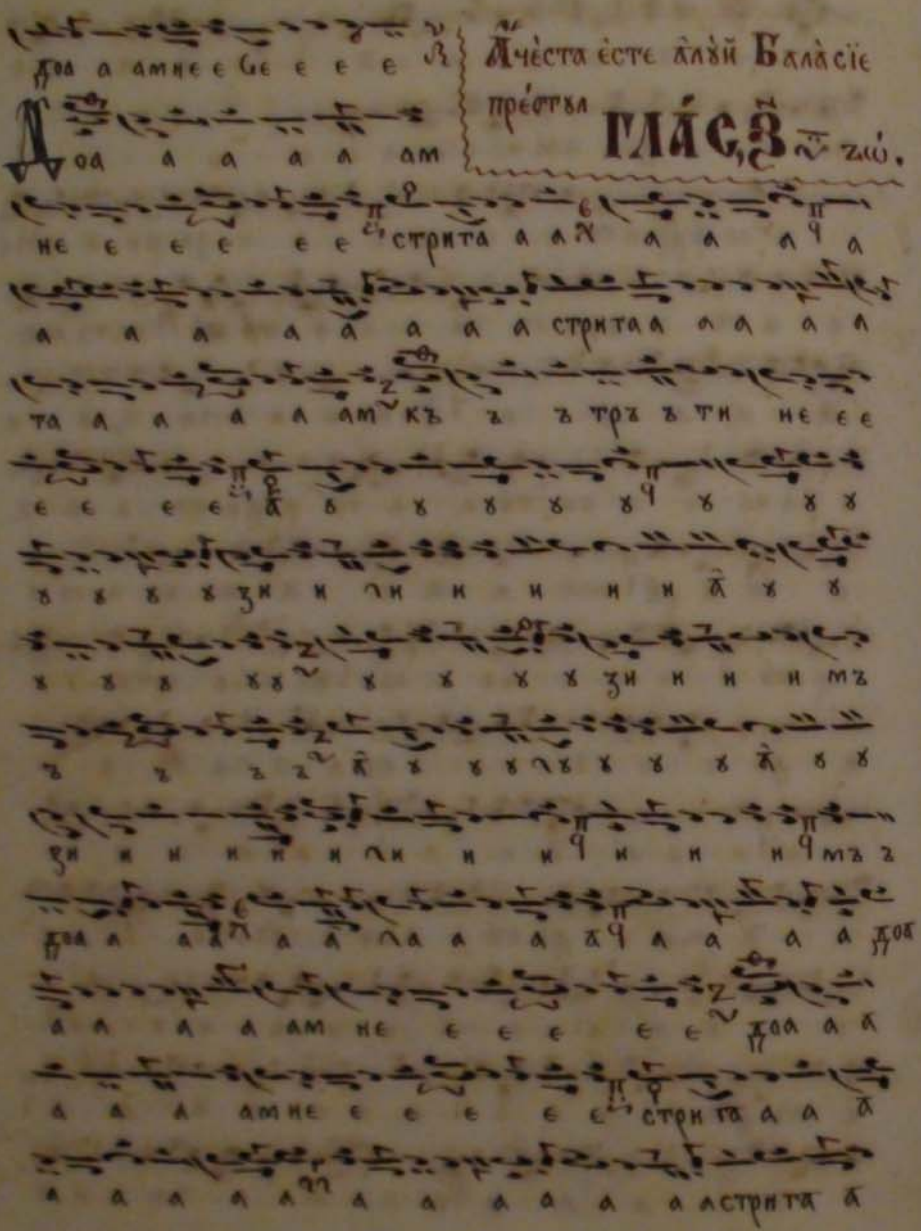 доа а амне е се е е е
А̓чѐста є҆сте а҆лꙋ́й Бала̀сїе
пре́ѡтꙋл
ГЛА́С, З҃ ꙁѡ́.
Доа а а а а ам
не е е е е е стрига а а а а а а
а а а а а а а а стрига а а а а а
та а а а а ам къ ъ ъ тръ ъ ти не е е
е е е е а ꙋ ꙋ ꙋ ꙋ ꙋ ꙋ ꙋ ꙋ
ꙋ ꙋ ꙋ ꙋ зи и и и и и и а ꙋ ꙋ
ꙋ ꙋ ꙋ ꙋ ꙋ ꙋ ꙋ ꙋ ꙋ зи и и и мъ
ъ ъ ъ ъ а ꙋ ꙋ ꙋ ꙋ ꙋ ꙋ ꙋ а ꙋ ꙋ
зи и и и и и и и и и и и мъ ъ
доа а а а а а а а а а а а а а доа
а а а а ам не е е е е е доа а а
а а а амне е е е е е стрига а а а
а а а а а а а а а а а астрига а